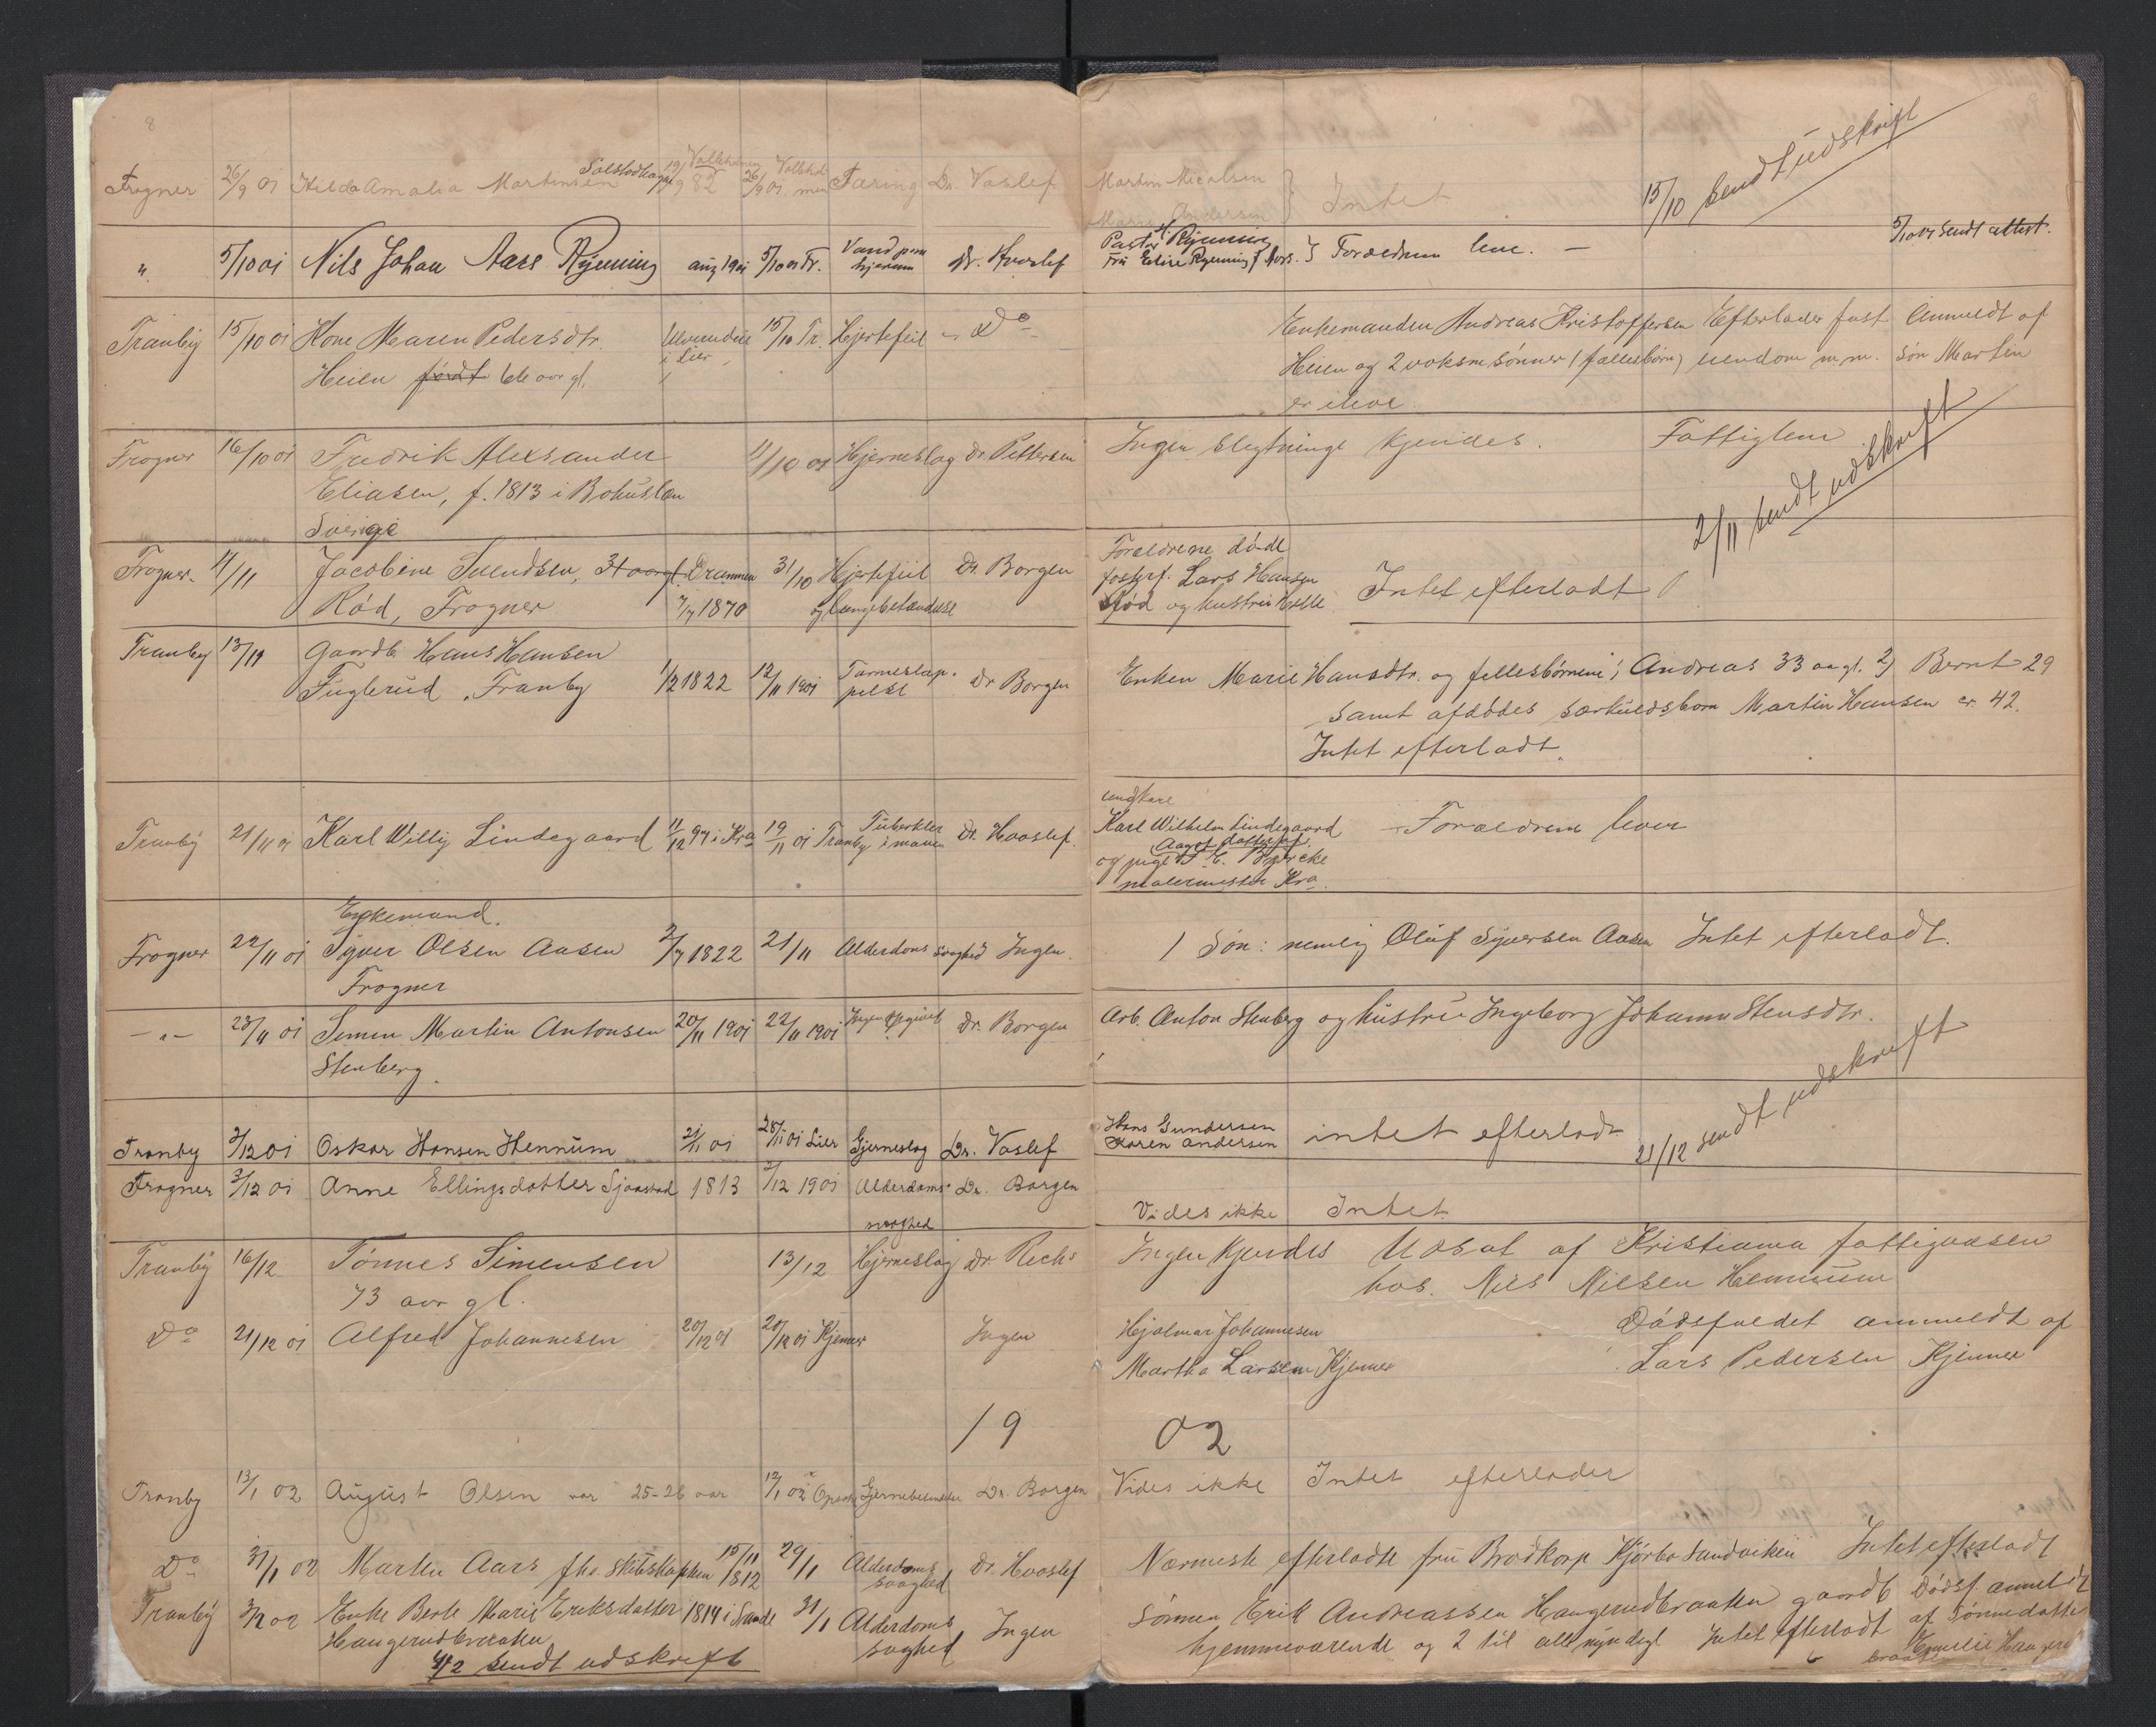 8
Frogner 26/9 01 Hilda Amalia Martinsen Solstadhagen 19/9 82 26/9 01 Tæring Dr. Voslef Martin Nicolsen Marie Andersen } Intet 15/10 sendt udskrift
" 5/10 01 Nils Johan Aars Rynning aug 1901 5/10 01 Tr. Vand paa hjernen Dr. Hvoslef Pastor Rynning Fru Elise Rynning f. Aars. } Forældrene leve. — 5/10 01 sendt attest.
Tranby 15/10 01 Kone Maren Pedersdtr. i Lier 15/10 Tr. Hjertefeil " Do Enkemanden Andreas Kristoffersen Efterlader fast Anmeldt af
Heien født 66 aar gl. Heien og 2 voksne sønner (fællesbørn) eiendom m.m. søn Martin
er ilive.
Frogner 16/10 01 Fredrik Alexsander 11/10 01 Hjerneslag Dr. Pettersen Ingen slegtninge kjendes. Fattiglem
Eliasen, f. 1813 i Bohuslen 2/11 sendt udskrift
Sverige
Frogner 1/11 Jacobine Svendsen, 31 aar gl. Drammen 31/10 Hjertefeil Dr. Borgen Forældrene døde
Rød, Frogner 7/7 1870 og lungebetændelse fosterf. Lars Hansen Intet efterladt
Rød og hustru Helle
Tranby 13/11 Gaardb. Hans Hansen
Fuglerud, Tranby 1/2 1822 12/11 1901 Dr Borgen Enken Marie Hansdtr. og fellesbørnene 1) Andreas 33 aa gl. 2) Bernt 29
samt afdødes særkuldsbarn Martin Hansen er 42.
Intet efterladt.
Tranby 21/11 01 Karl Willy Lindegaard 11/12 97 i Kra 19/11 01 Tranby Tuberkler i maven Dr. Hvoslef. ungkarl
Karl Wilhelm Lindegaard — Forældrene lever
og pige Aagot datter af E. Bjercke
malermester Kra.
Enkemand.
Frogner 22/11 01 Syver Olsen Aasen 2/7 1822 21/11 Alderdoms svaghed Ingen. 1 Søn: nemlig Oluf Syversen Aasen Intet efterladt.
Frogner
— " — 23/11 01 Simen Martin Antonsen 20/11 1901 22/11 1901 Ingen opgivet Dr. Borgen Arb. Anton Stenberg og hustru Ingeborg Johanne Stensdtr.
Stenberg.
Tranby 2/12 01 Oskar Hansen Hennum 21/11 01 28/11 01 Lier Hjerneslag Dr. Voslef Hans Gundersen Karen Andersen intet efterladt 21/12 sendt udskrift
Frogner 3/12 01 Anne Ellingsdatter Sjaastad 1813 2/12 1901 Alderdoms svaghed Dr. Borgen Vides ikke Intet
Tranby 16/12 Tønnes Simensen 13/12 Hjerneslag Dr. Rechs Ingen kjendes Udsat af Kristiania fattigvæsen
73 aar gl. hos. Nils Nielsen Hennum
Do 21/12 01 Alfred Johannesen 20/12 01 20/12 01 Kjenner Ingen Hjalmar Johannesen Dødsfaldet anmeldt af
Martha Larsen Kjenner Lars Pedersen Kjenner
19 02
Tranby 13/1 02 August Olsen var 25-26 aar 12/1 02 Dr. Borgen Vides ikke Intet efterlader
Do 31/1 02 Marthe Aars 15/11 1812 29/1 Alderdoms svaghed Dr. Hvoslef Nærmeste efterladte fru Brodkorp Kjørbo Sandviken Intet efterladt
Tranby 3/2 02 Enke Berte Marie Eriksdatter 1814 i Sande 31/1 Alderdoms svaghed Ingen Sønnen Erik Andreassen Haugerudbraaten gaardb. Dødsf. anmeldt
Haugerudbraaten hjemmeværende og 2 til alle myndige Intet efterladt af Sønnedatter
4/2 sendt udskrift